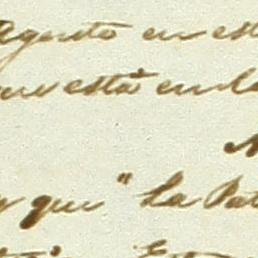 Agosto en est
que está en la
y que "La Pat